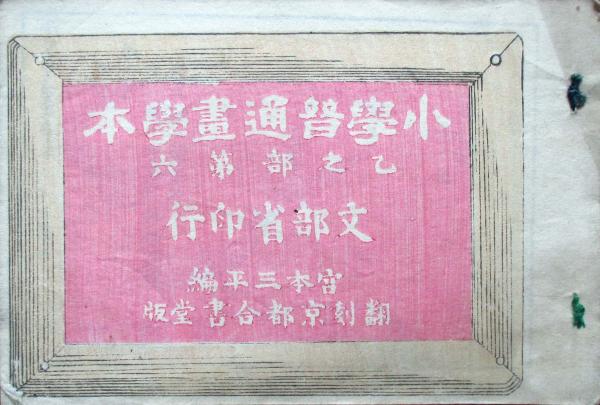 小學普通畫學本
乙之部第六
文部省印行
宮本三平編
翻刻京都合書堂版